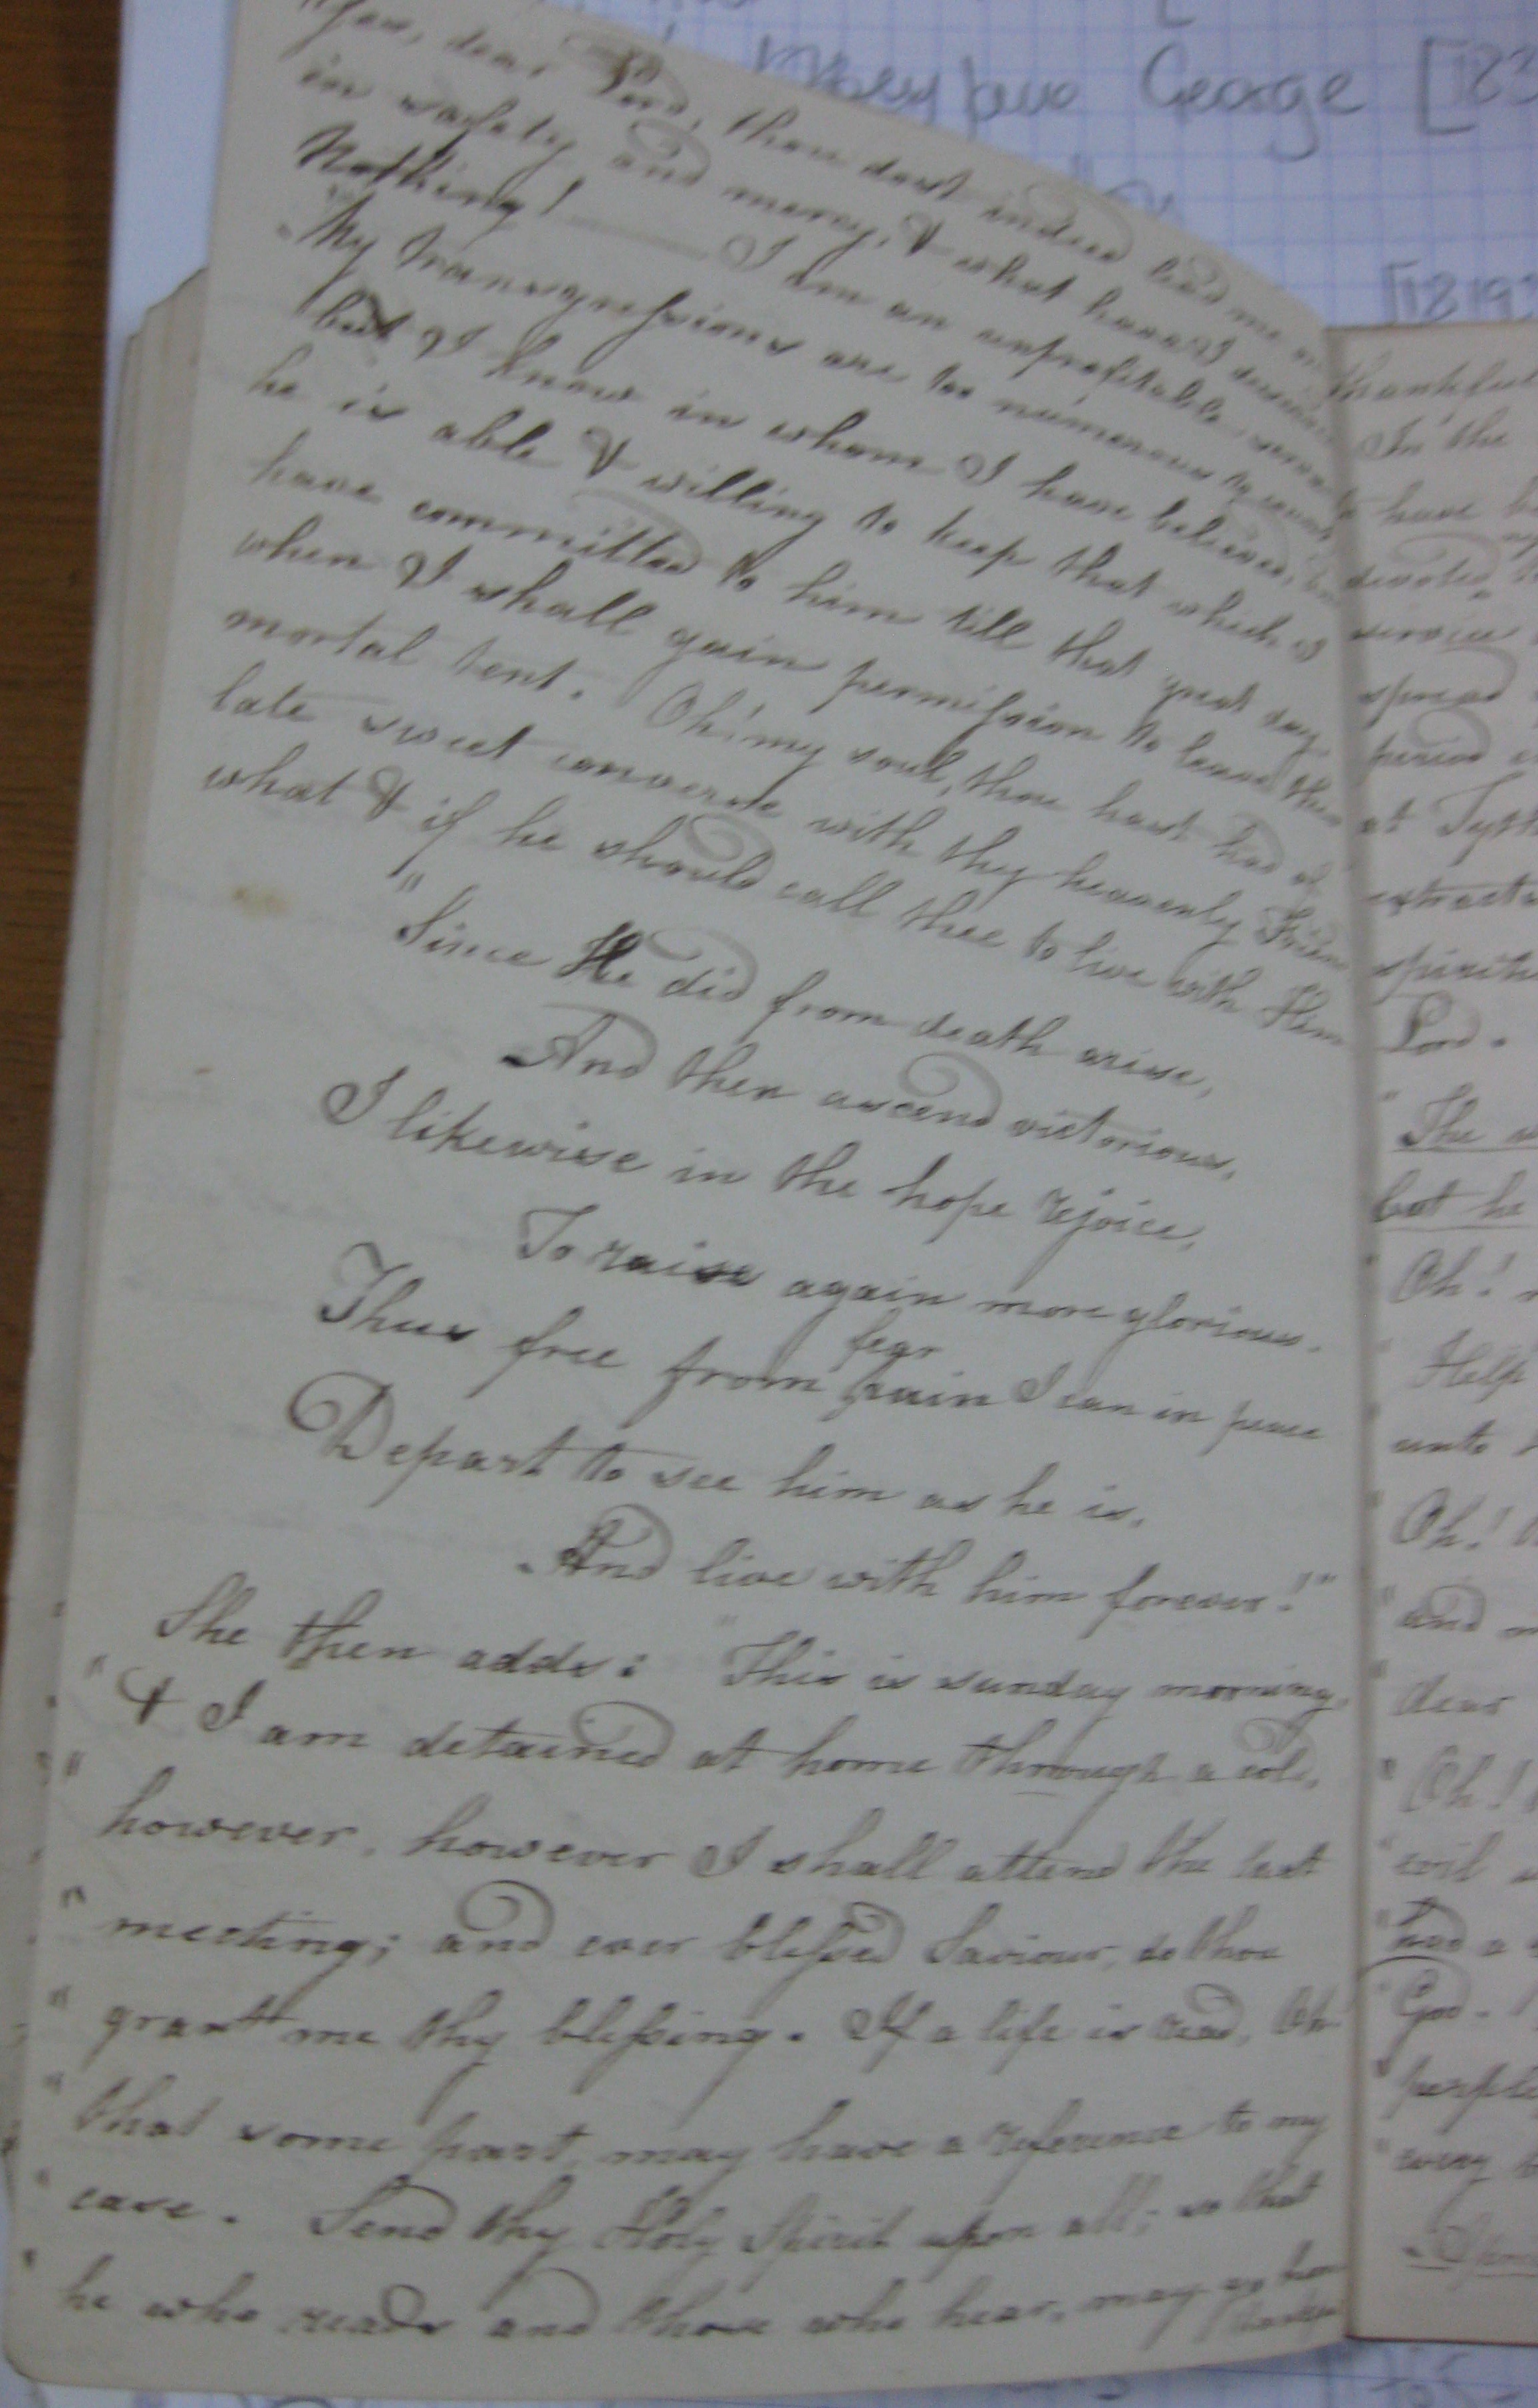 George [123
[1219
Yes, dear Lord, thou dost indeed lead me
in safety and mercy, & what have I
Nothing! I am an unprofitable
My transgressions are too numerous to
but I know in whom I have believed,
he is able & willing to keep that which I
have committed to him till that great day,
when I shall gain permission to leave this
mortal tent. Oh! my soul, thou hast had of
late sweet converse with thy heavenly Frien
what & if he should call thee to live with Him
"Since He did from death arise,
And then ascend victorious,
I likewise in the hope rejoice,
To raise again more glorious.
fear
Thus free from pain I can in peace
Depart to see him as he is,
And live with him forever!"
She then adds: "This is sunday morning,
"& I am detained at home through a cold,
" however, however I shall attend the last
" meeting; and ever blessed Saviour, do thou
" grant me thy blessing. If a life is read, Oh
" that some part may have a reference to my
" case. Send thy Holy Spirit upon all; so that
" he who reads and those who hear, may
thankful
In the
to have
devoted
service
spread
period
at Tyth
extracts
spirit
Lord.
"The
but he
" Oh!
" Help
" unto
" Oh!
" and
" dear
" Oh!
" evil
" had a
" God.
" perple